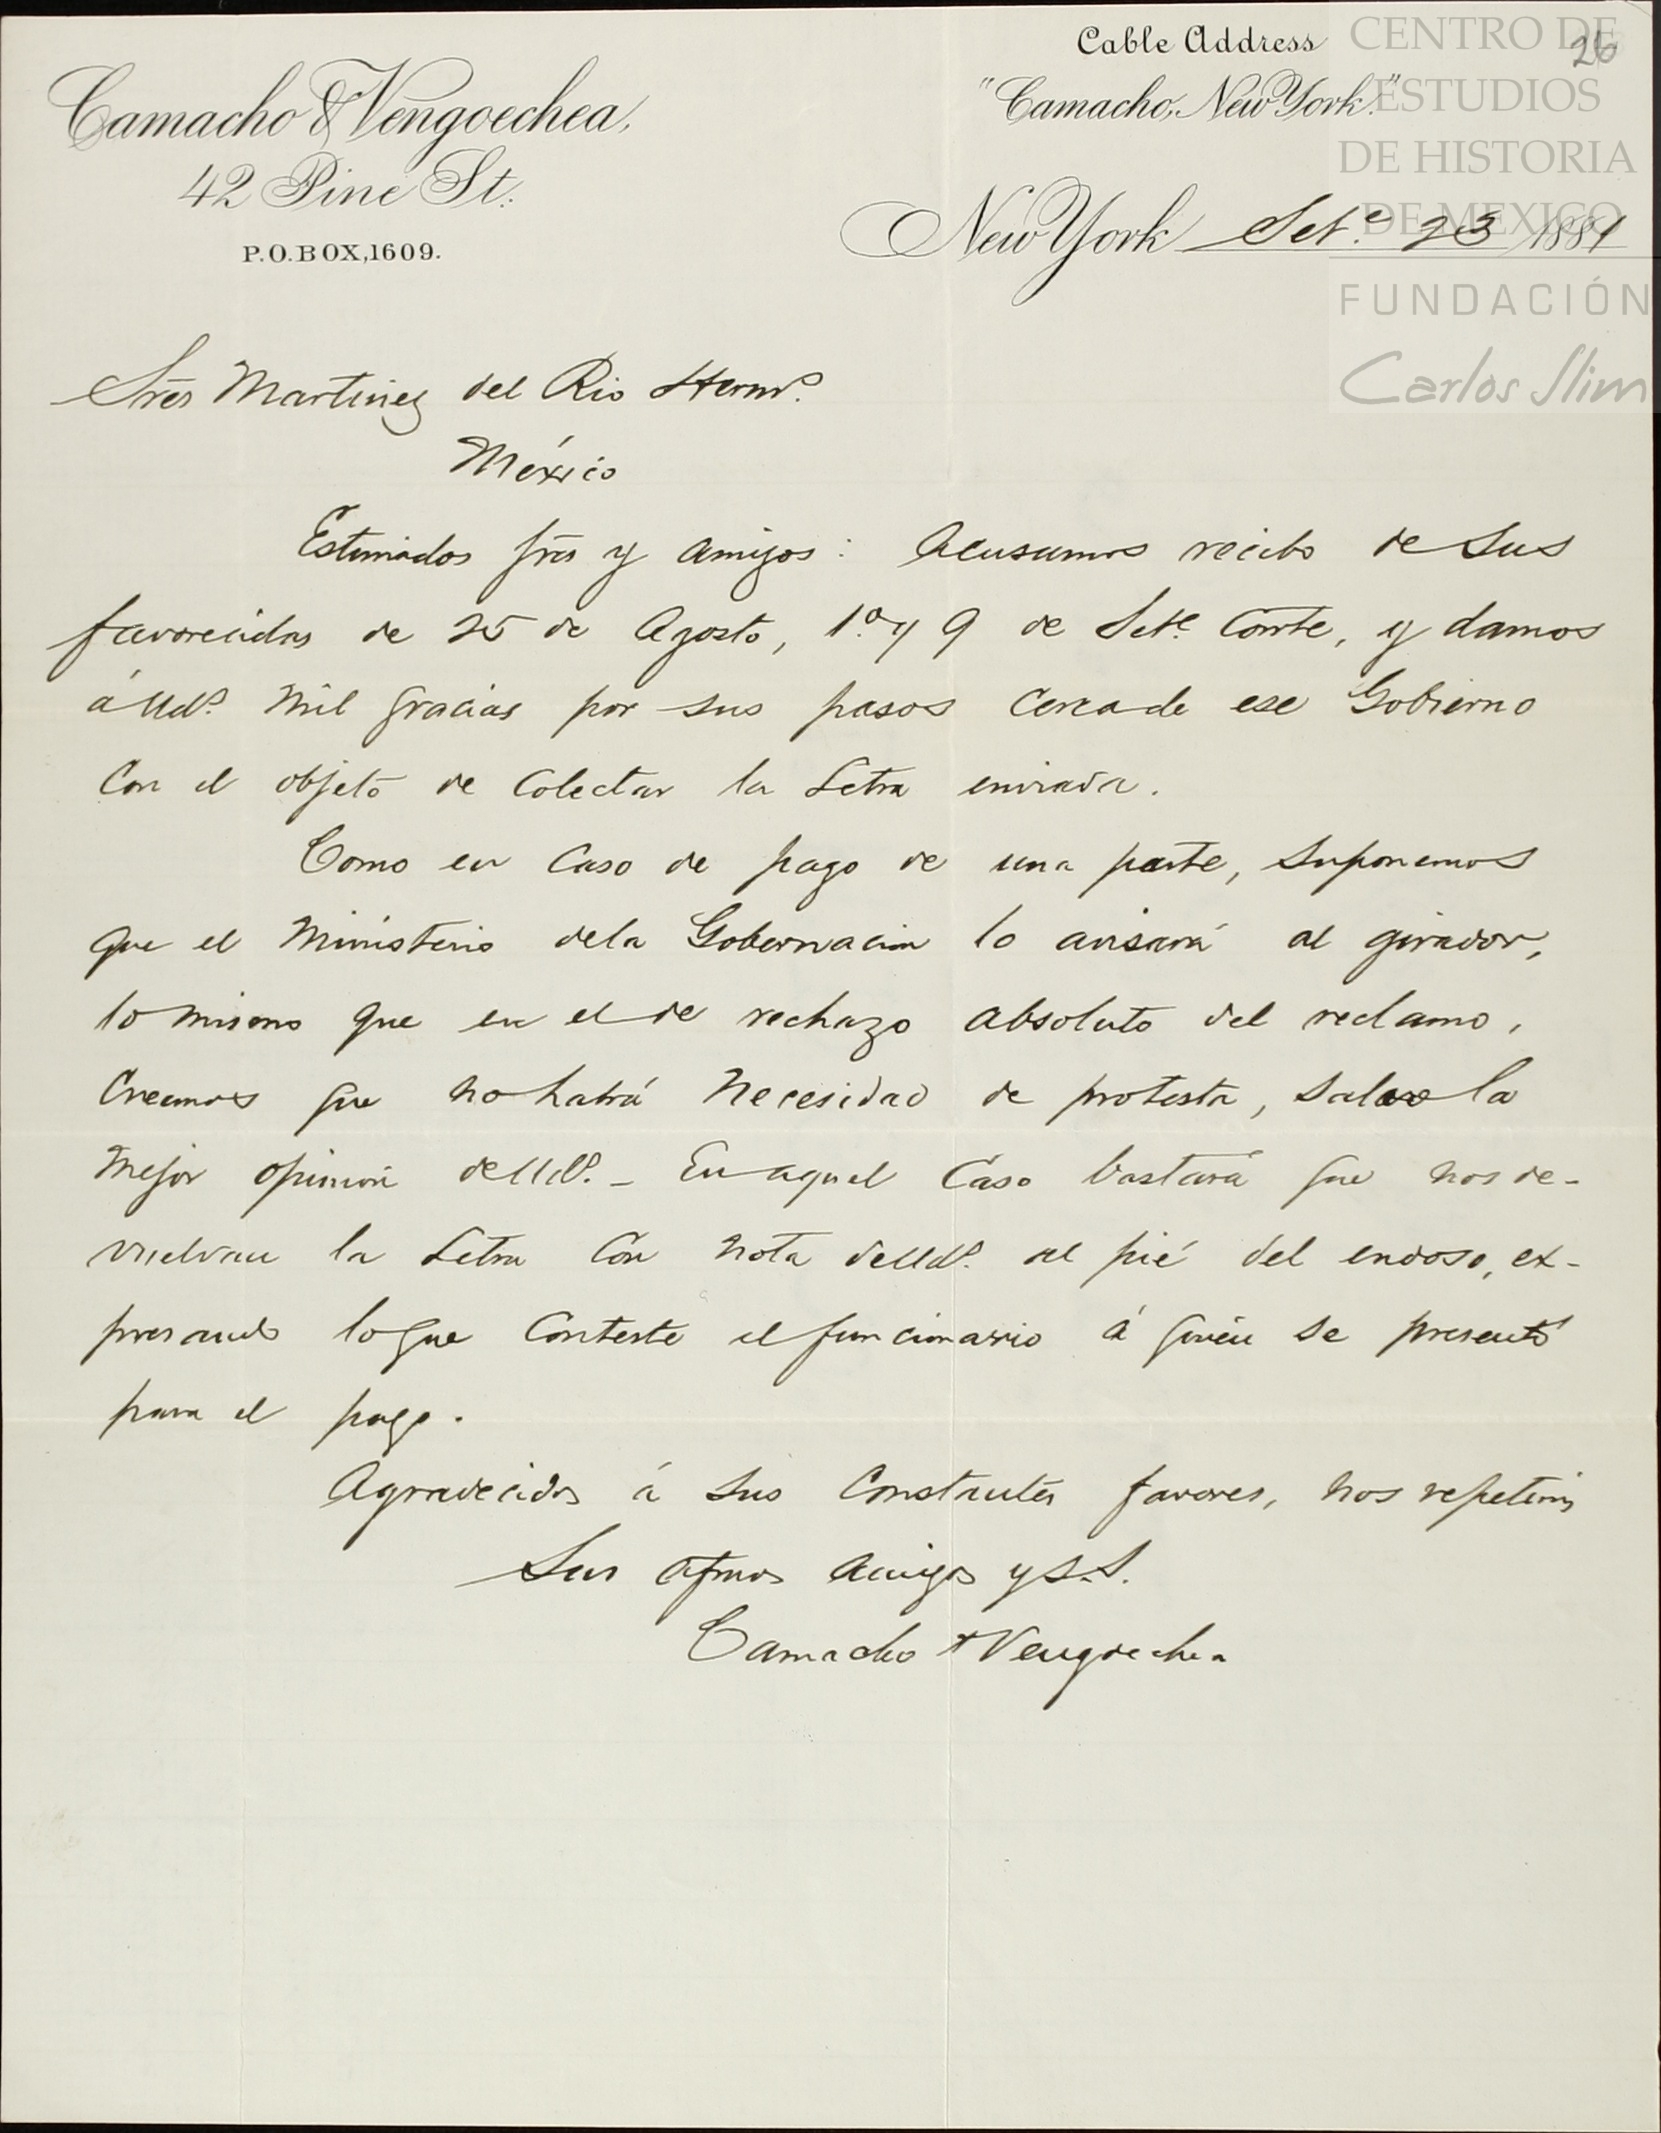 Camacho & Vengoechea,
42 Pine St.
P.O.BOX,1609.
Cable Address
"Camacho, New York."
26
New York Set.e 23 1881
CENTRO DE
ESTUDIOS
DE HISTORIA
DE MEXICO
FUNDACIÓN
Carlos Slim
Sres Martinez del Rio Hermos.
México
Estimados Sres y amigos: Acusamos recibo de sus
favorecidas de 25 de Agosto, 1o. y 9 de Sete. Corrte, y damos
á Uds. mil gracias por sus pasos cerca de ese Gobierno
con el objeto de colectar la Letra enviada.
Como en caso de pago de una parte, suponemos
que el Ministerio dela Gobernacion lo avisará al girador,
lo mismo que en el de rechazo absoluto del reclamo,
creemos que no habrá necesidad de protesta, salvo la
mejor opinion de Uds. _ En aquel caso bastará que nos de-
vuelvan la Letra con nota de Uds. al pié del endoso, ex-
presando lo que conteste el funcionario á quien se presentó
para el pago.
Agradecidos á sus constantes favores, nos repetimos
Sus afmos amigos y S.S.
Camacho & Vengoechea